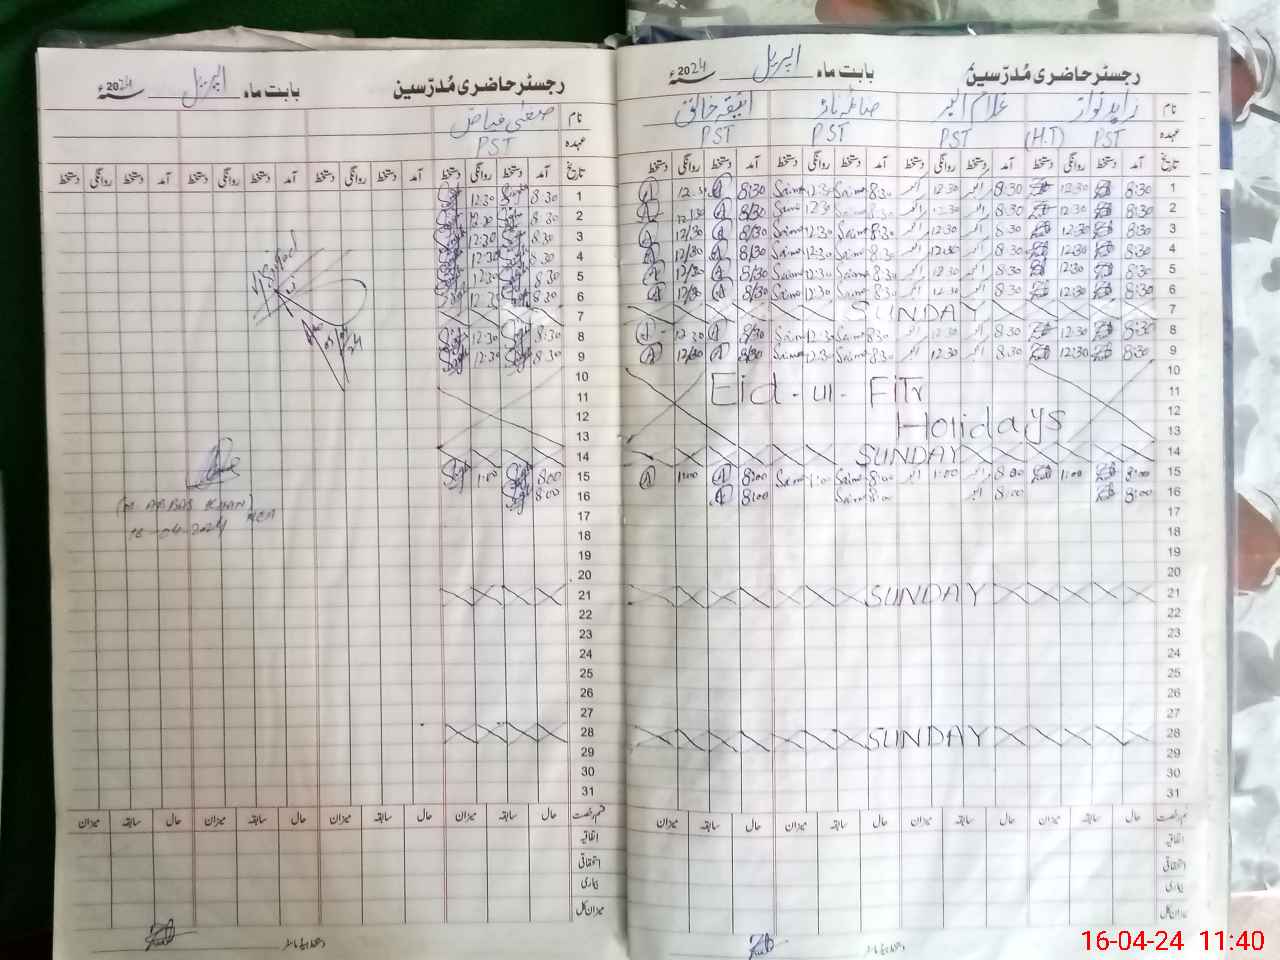 رجسٹر حاضری مُدرّسین بابت ماہ اپریل 2024ء
نام زاہد نواز غلام اکبر صائمہ ناز انیقہ خالق
عہدہ PST (H.T) PST PST PST
تاریخ آمد دستخط روانگی دستخط آمد دستخط روانگی دستخط آمد دستخط روانگی دستخط آمد دستخط روانگی دستخط
1 8:30 12:30 8:30 اکبر 12:30 اکبر 8:30 Saima 12:30 Saima 8:30 12:30
2 8:30 12:30 8:30 اکبر 12:30 اکبر 8:30 Saima 12:30 Saima 8:30 12:30
3 8:30 12:30 8:30 اکبر 12:30 اکبر 8:30 Saima 12:30 Saima 8:30 12:30
4 8:30 12:30 8:30 اکبر 12:30 اکبر 8:30 Saima 12:30 Saima 8:30 12:30
5 8:30 12:30 8:30 اکبر 12:30 اکبر 8:30 Saima 12:30 Saima 8:30 12:30
6 8:30 12:30 8:30 اکبر 12:30 اکبر 8:30 Saima 12:30 Saima 8:30 12:30
7 SUNDAY
8 8:30 12:30 8:30 اکبر 12:30 اکبر 8:30 Saima 12:30 Saima 8:30 12:30
9 8:30 12:30 8:30 اکبر 12:30 اکبر 8:30 Saima 12:30 Saima 8:30 12:30
10
11 Eid-ul-Fitr
12
13 Holidays
14 SUNDAY
15 8:00 1:00 8:00 اکبر 1:00 اکبر 8:00 Saima 1:00 Saima 8:00 1:00
16 8:00 8:00 اکبر 8:00 Saima 8:00
17
18
19
20
21 SUNDAY
22
23
24
25
26
27
28 SUNDAY
29
30
31
قسم رخصت حال سابقہ میزان حال سابقہ میزان حال سابقہ میزان حال سابقہ میزان
اتفاقیہ
استحقاقی
بیماری
میزان کل
دستخط ہیڈ ماسٹر
رجسٹر حاضری مُدرّسین بابت ماہ اپریل 2024ء
نام فیاض
عہدہ PST
تاریخ آمد دستخط روانگی دستخط آمد دستخط روانگی دستخط آمد دستخط روانگی دستخط آمد دستخط روانگی دستخط
1 8:30 12:30
2 8:30 12:30
3 8:30 12:30
4 8:30 12:30
5 8:30 12:30
6 8:30 12:30
7
8 8:30 12:30
9 8:30 12:30
10
11
12
13
14
15 8:00 1:00
16 8:00
17
18
19
20
21
22
23
24
25
26
27
28
29
30
31
(M ABBAS KHAN)
MEA
16-04-2024
حال سابقہ میزان حال سابقہ میزان حال سابقہ میزان حال سابقہ میزان
دستخط ہیڈ ماسٹر
16-04-24 11:40